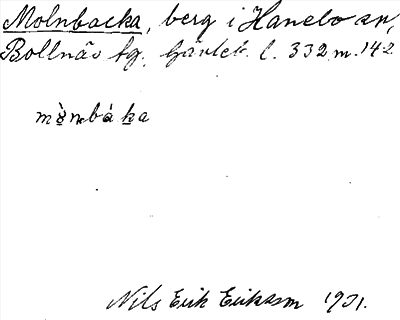 Molnbacka, berg i Hanebo sn,
Bollnäs tg, Gävleb. l. 332 m. 142
Nils Erik Eriksson 1931.